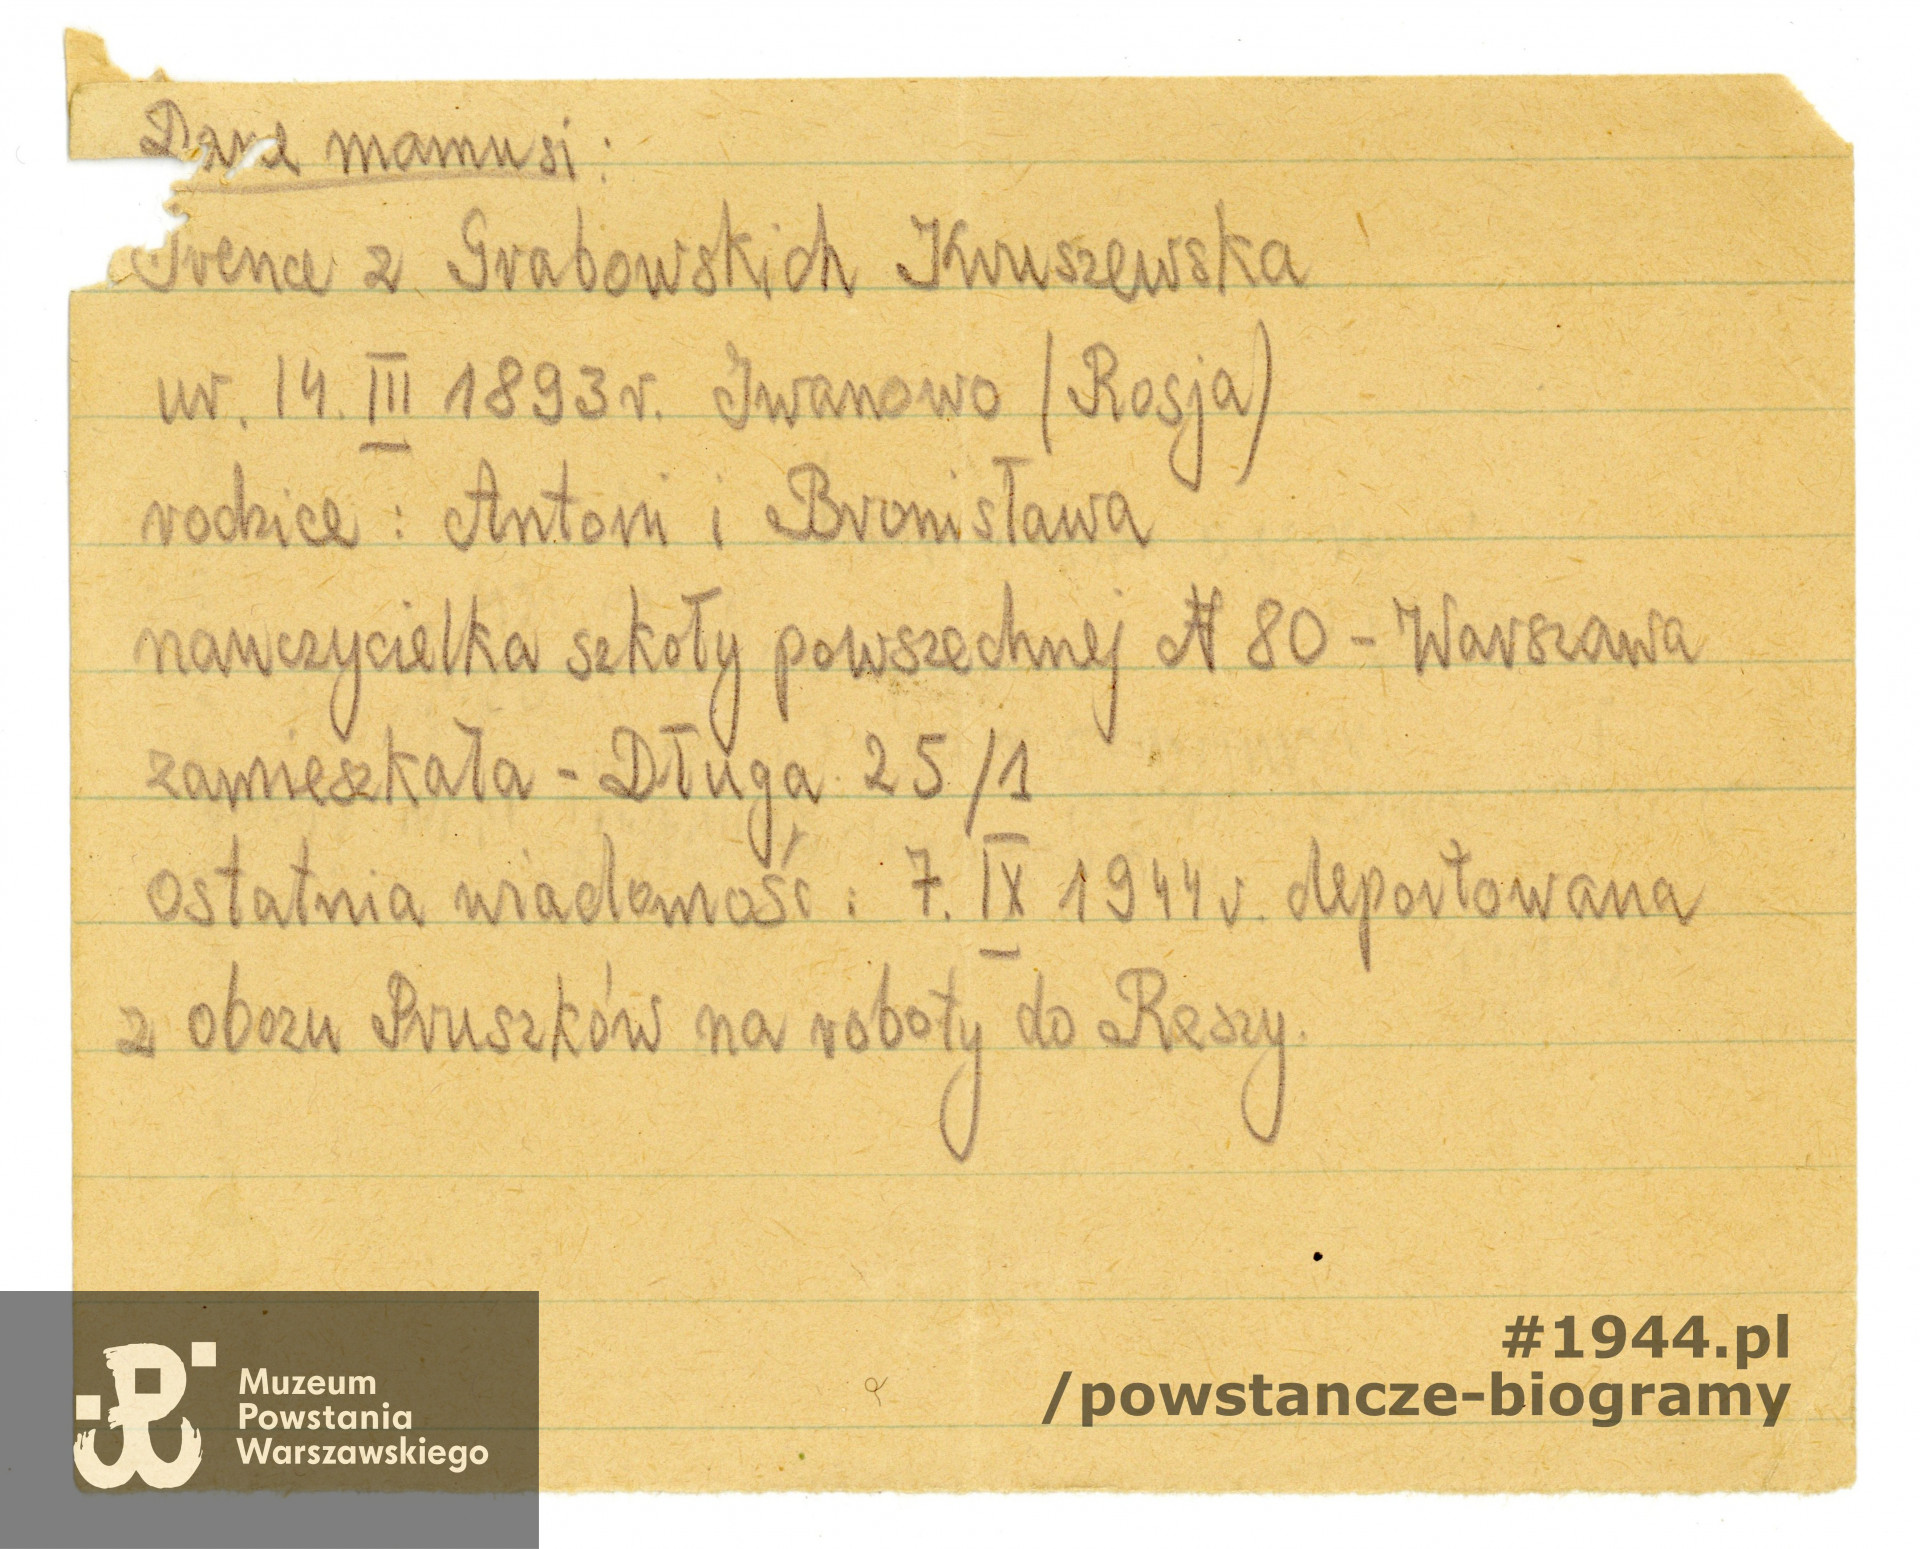 Dane mamusi:
Irena z Grabowskich Kruszewska
ur. 14. III 1893 r. Iwanowo (Rosja)
rodzice: Antoni i Bronisława
nauczycielka szkoły powszechnej № 80 - Warszawa
zamieszkała - Długa 25/1
ostatnia wiadomość: 7. IX 1944 r. deportowana
z obozu Pruszków na roboty do Rzeszy.
Muzeum
Powstania
Warszawskiego
#1944.pl
/powstancze-biogramy